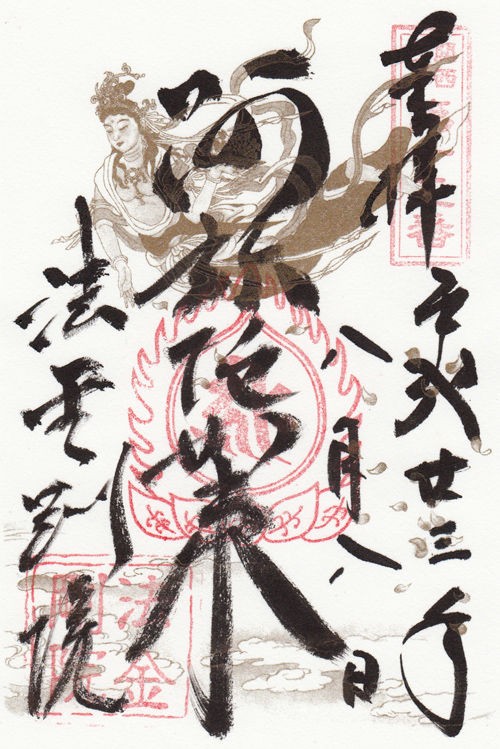 奉拝
平成廿三年
八月八日
阿弥陀如来
法金剛院
法金
剛院